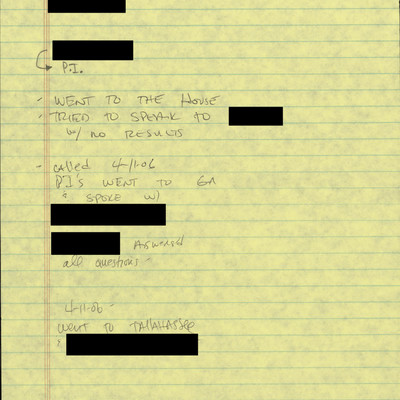 P.I.
- WENT TO THE HOUSE
- TRIED TO SPEAK TO
w/ NO RESULTS
- called 4-11-06
P.I's WENT TO GA
& SPOKE W/
ANSWERED
all questions -
4-11-06 -
WENT TO TALLAHASSEE
&